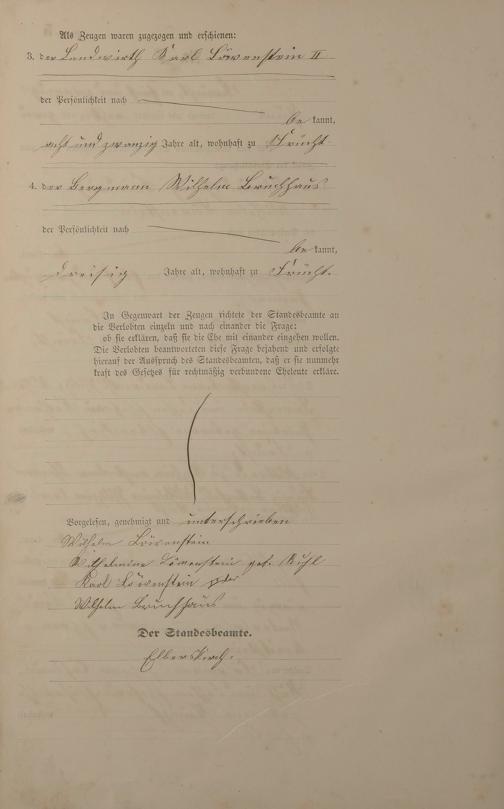 Als Zeugen waren zugezogen und erschienen:
3. der Landwirth Karl Löwenstein II
der Persönlichkeit nach
be kannt,
acht und zwanzig Jahre alt, wohnhaft zu Frücht
4. der Bergmann Wilhelm Bruchhaus
der Persönlichkeit nach
be kannt,
dreisig Jahre alt, wohnhaft zu Frücht.
In Gegenwart der Zeugen richtete der Standesbeamte an
die Verlobten einzeln und nach einander die Frage:
ob sie erklären, daß sie die Ehe mit einander eingehen wollen.
Die Verlobten beantworteten diese Frage bejahend und erfolgte
hierauf der Ausspruch des Standesbeamten, daß er sie nunmehr
kraft des Gesetzes für rechtmäßig verbundene Eheleute erkläre.
Vorgelesen, genehmigt und unterschrieben
Wilhelm Löwenstein
Wilhelmine Löwenstein geb.
Karl Löwenstein
Wilhelm Bruchhaus
Der Standesbeamte.
Elberskirch.